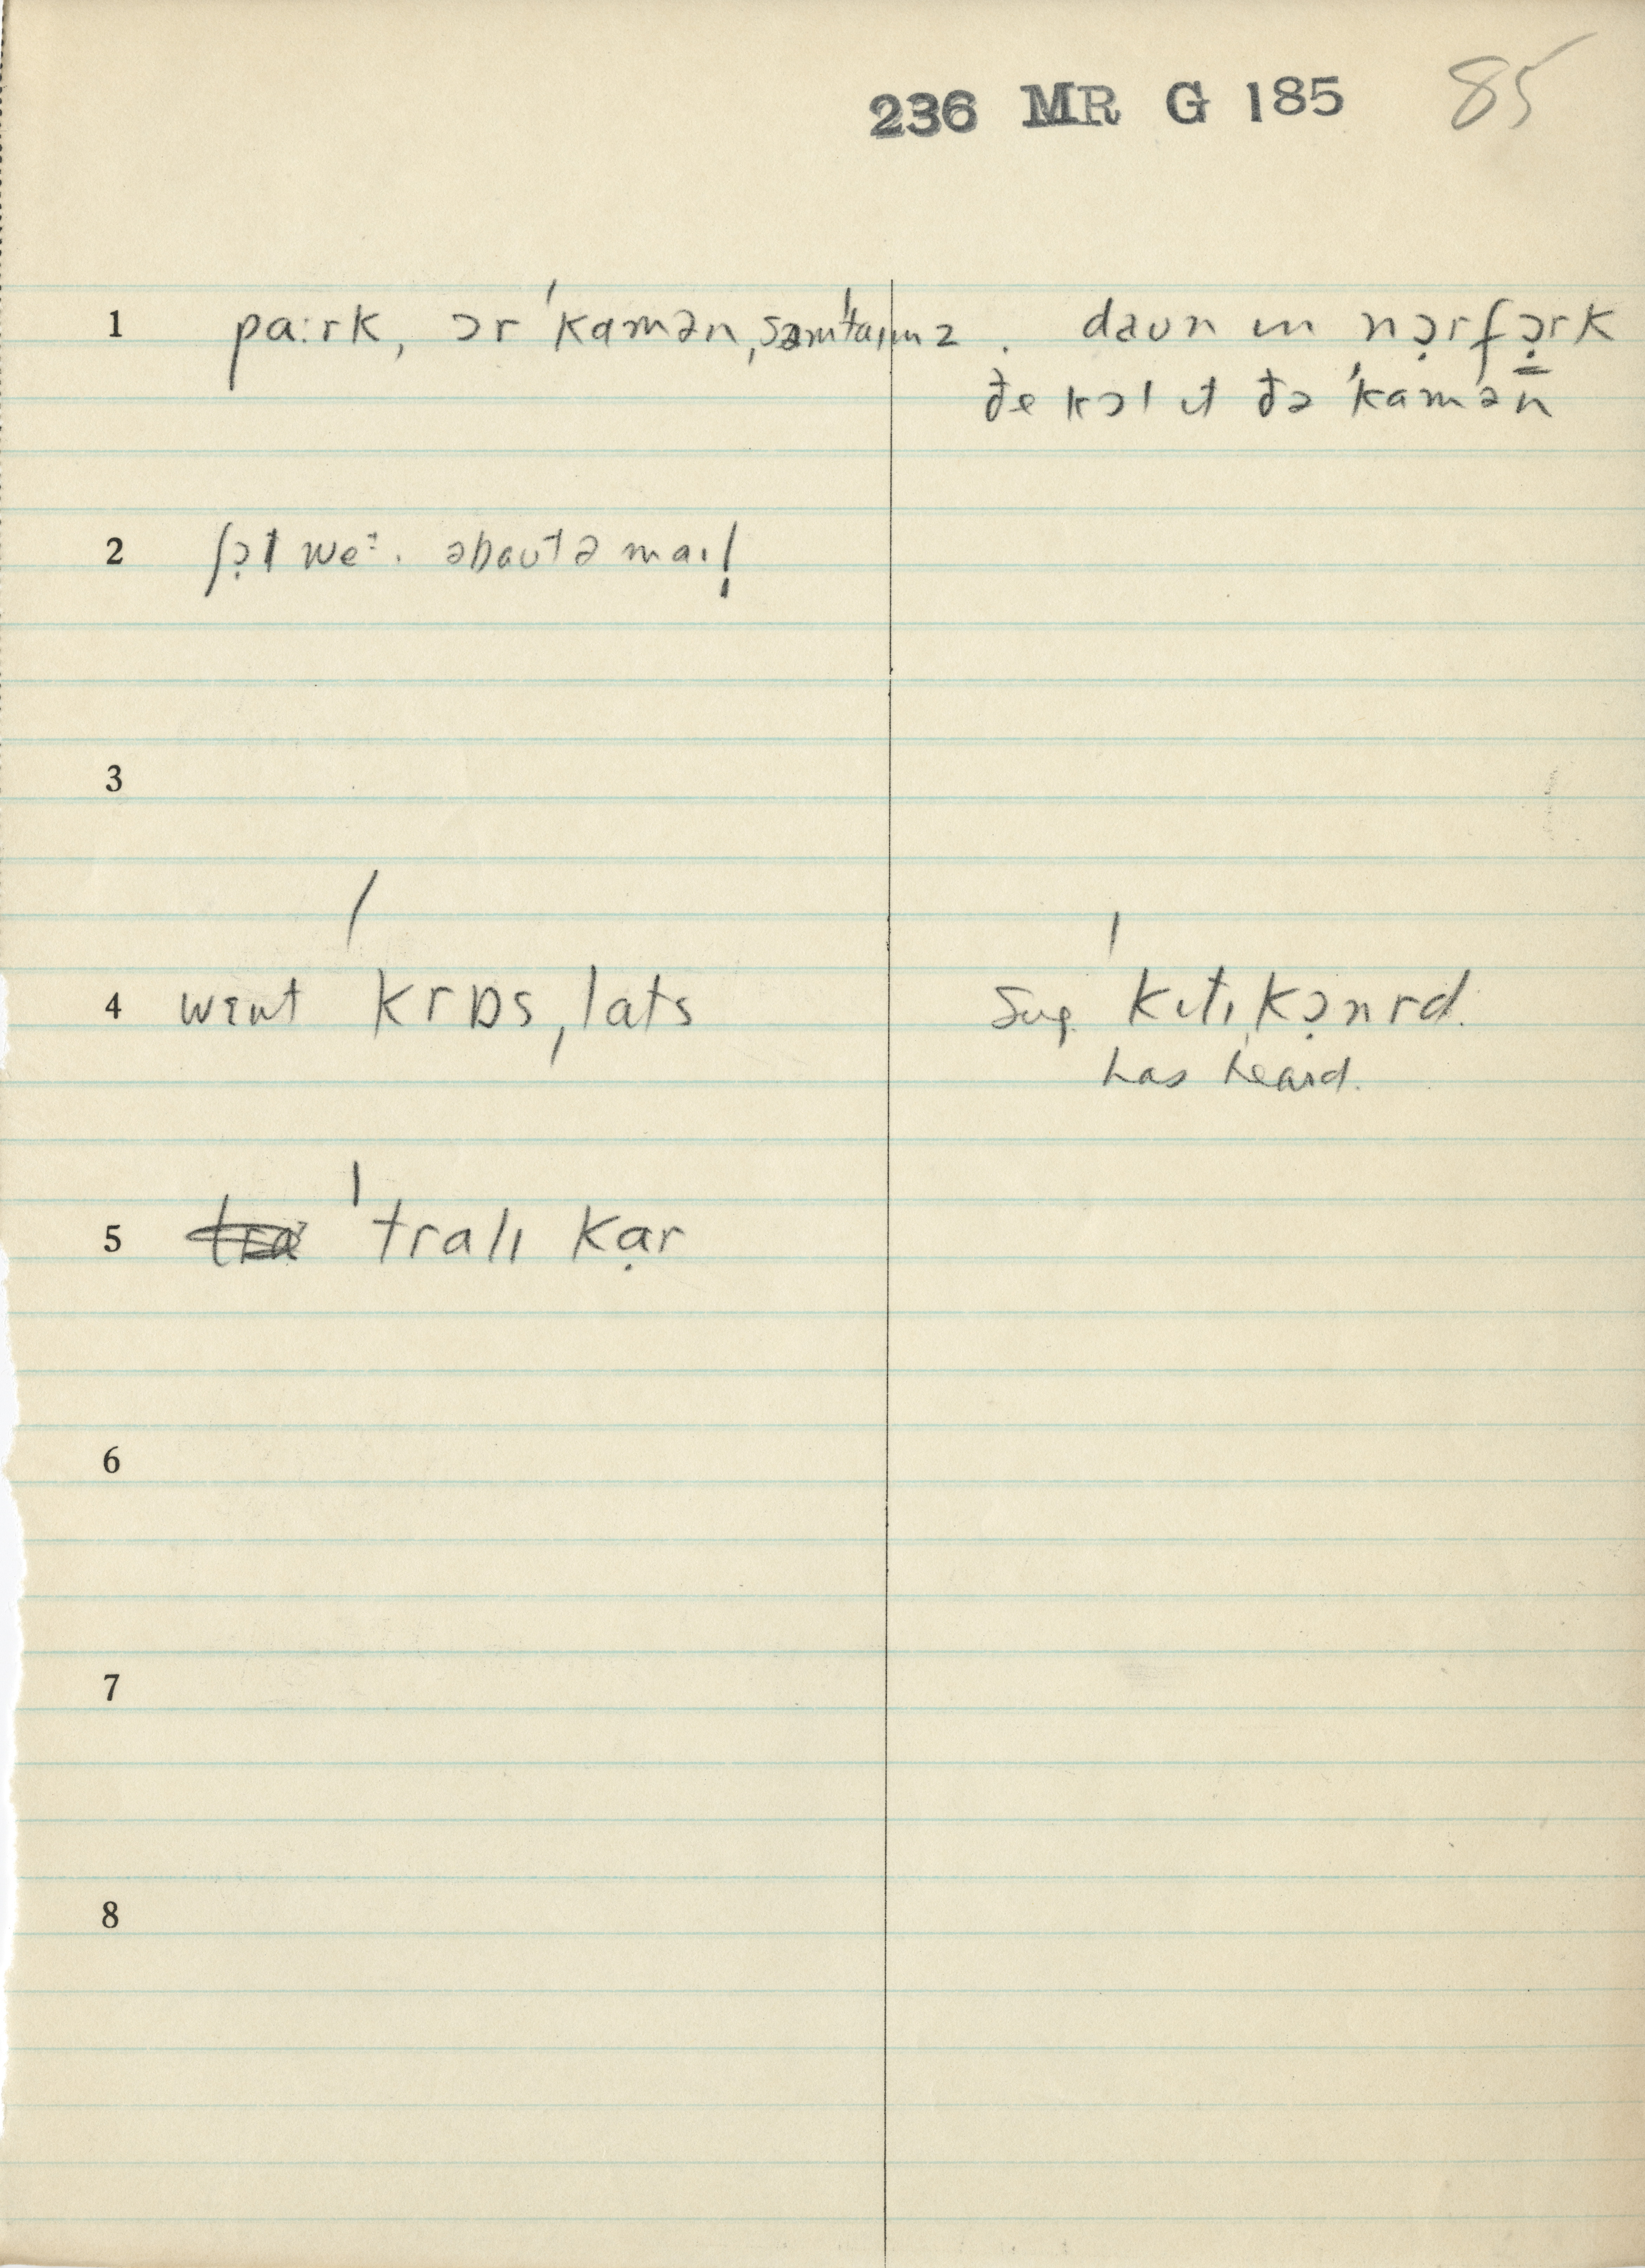 236 MR G 185 85
1 pa:rk, ɔr ˈkamən, ˌsəmˈtaɪmz . daʊn ɪn nɔ̣rfə̣rk
ðe kɔl ɪt ðə ˈkamən
2 ʃɔ̣t we:. əbaʊt ə maɪl
3
4 wɛnt ˈkrɒsˌlats Sug. ˈkɪtɪˌkɔ̣nrd.
has heard.
5 ˈtralɪ kạr
6
7
8